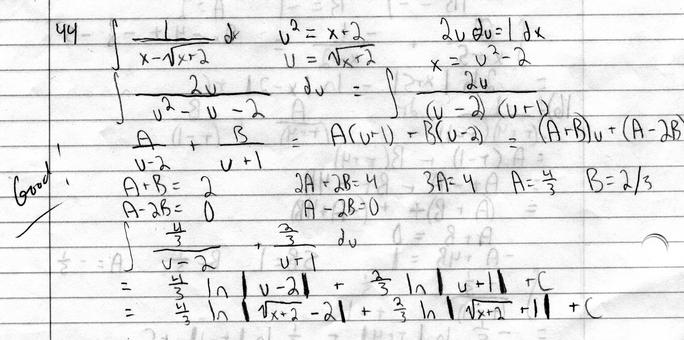 44 ∫ 1/(x-√(x+2)) dx u² = x+2 2u du = 1 dx
u = √(x+2) x = u²-2
∫ 2u/(u²-u-2) du = ∫ 2u/((u-2)(u+1))
A/(u-2) + B/(u+1) = A(u+1) + B(u-2) = (A+B)u + (A-2B)
Good!
A+B = 2 2A+2B=4 3A=4 A=4/3 B=2/3
A-2B= 0 A-2B=0
∫ (4/3)/(u-2) + (2/3)/(u+1) du
= 4/3 ln |u-2| + 2/3 ln |u+1| +C
= 4/3 ln |√(x+2) -2| + 2/3 ln |√(x+2) +1| +C